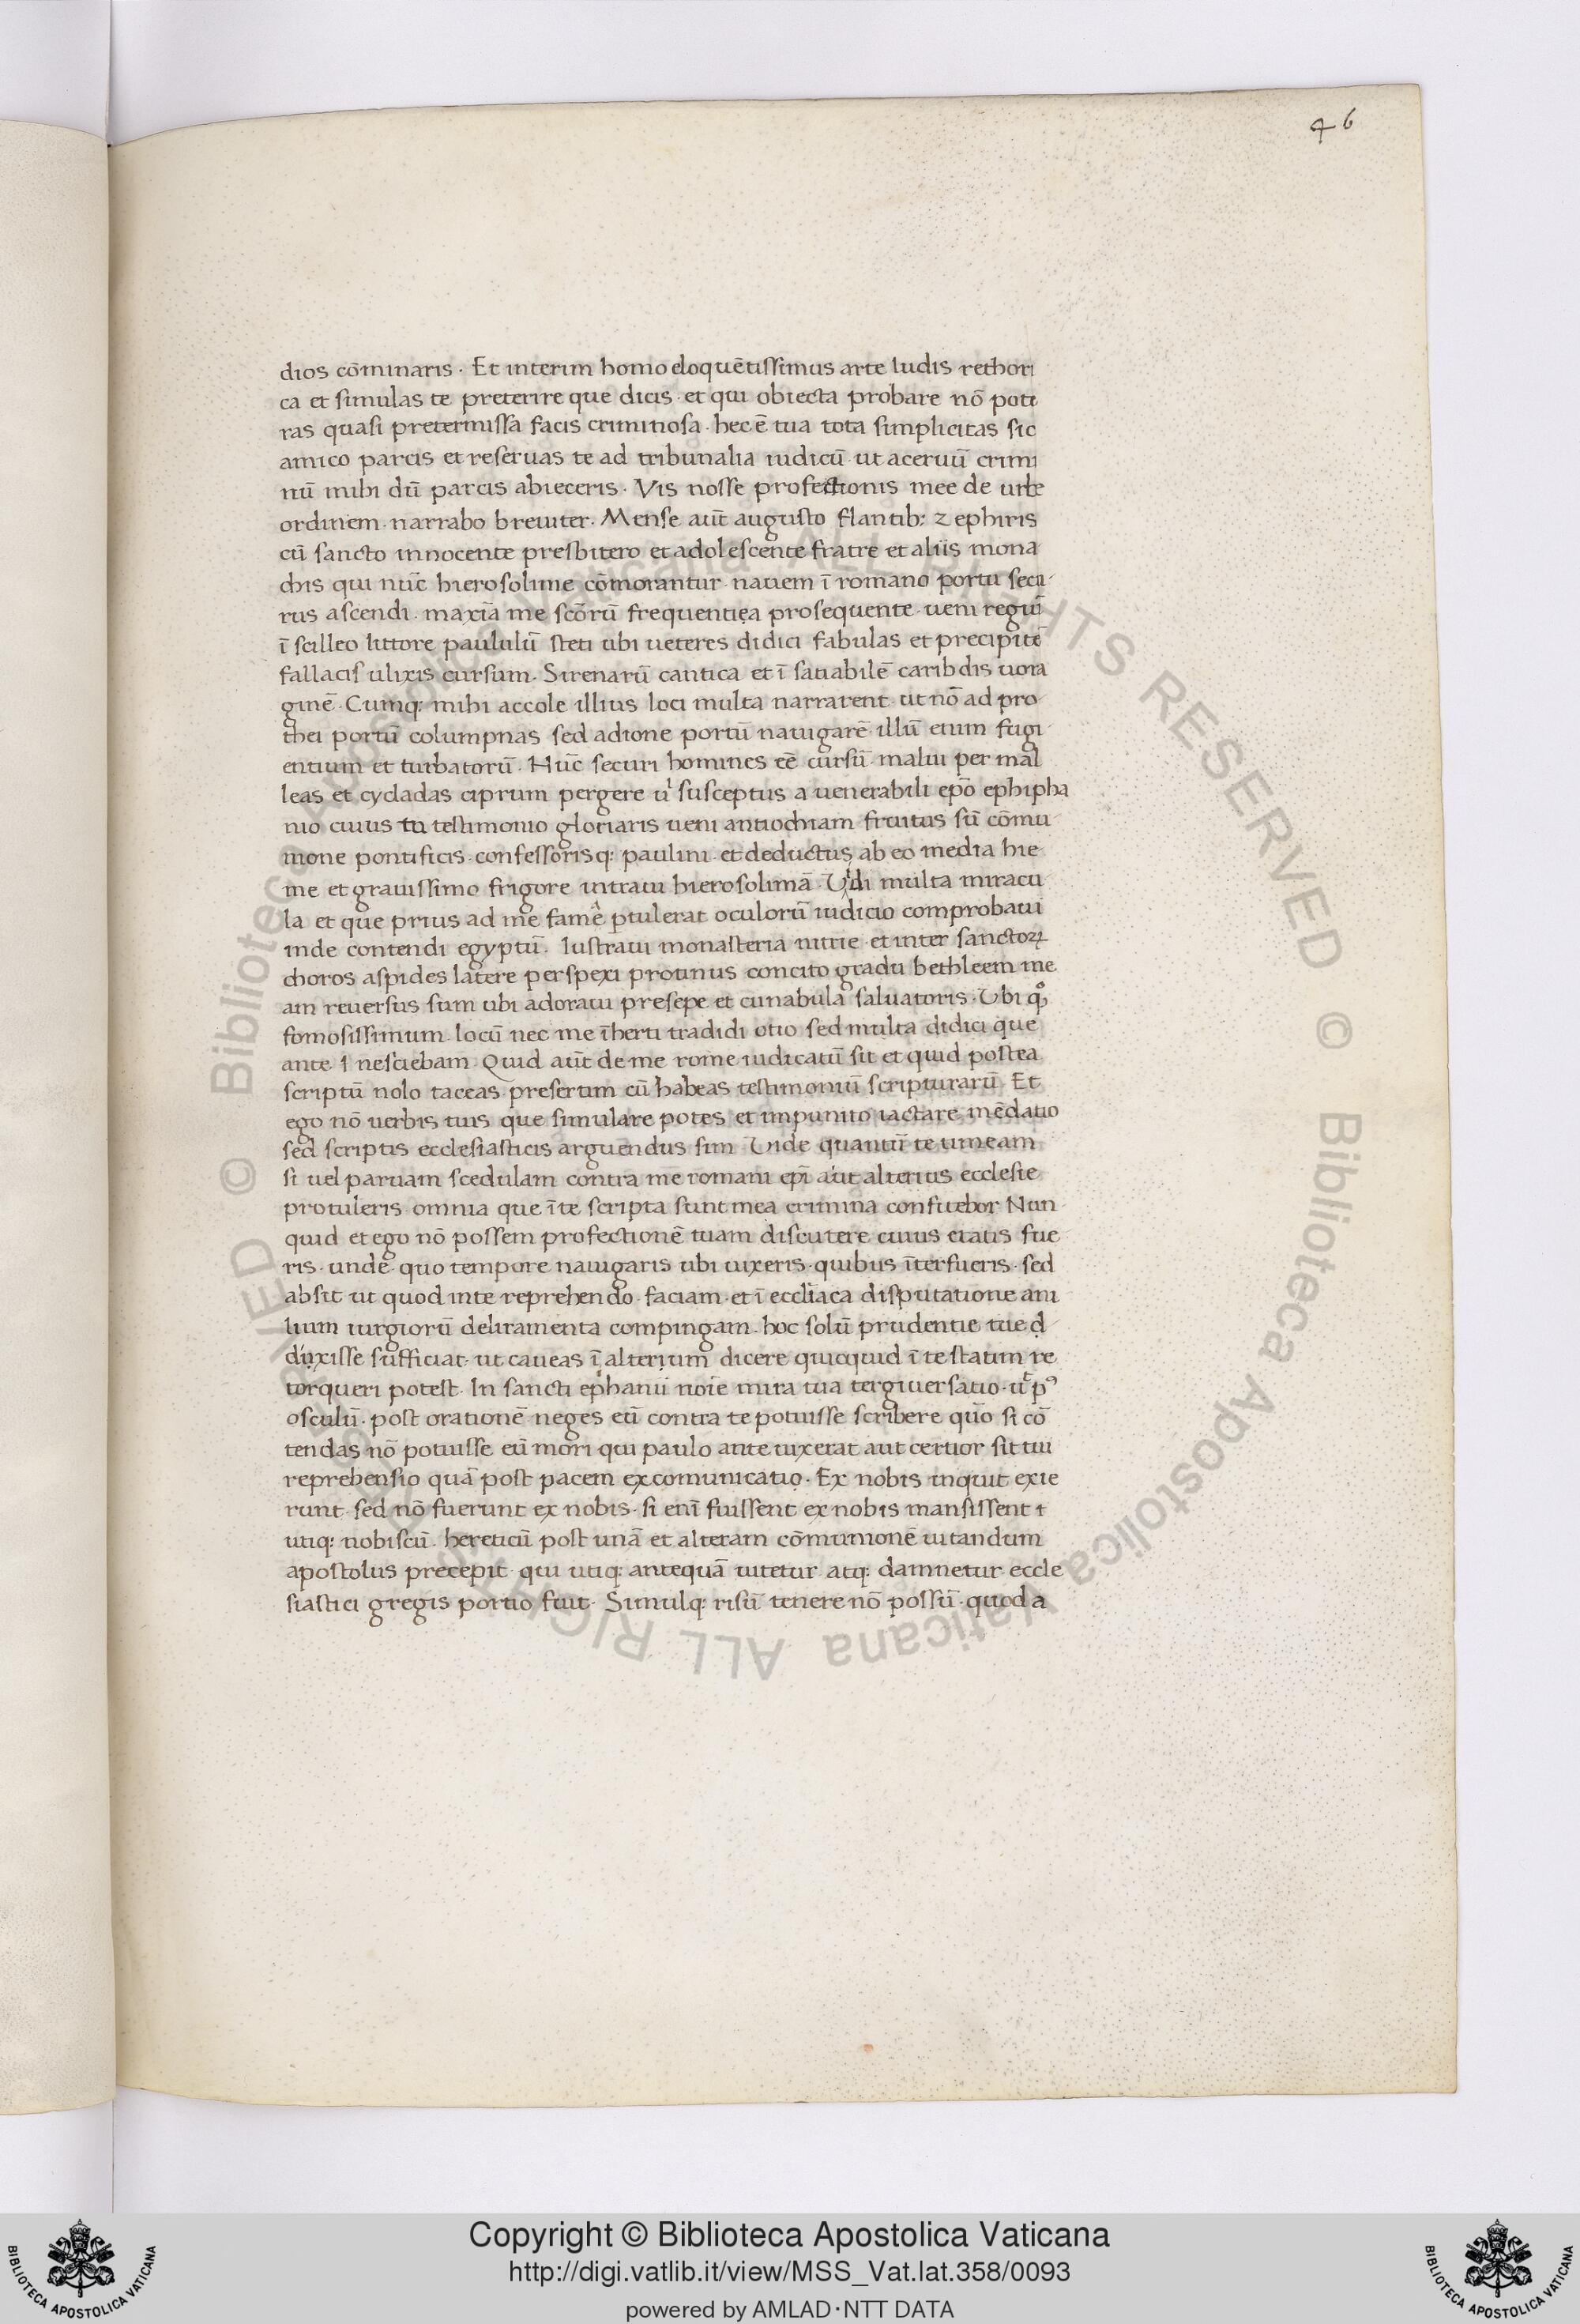 46
dios cōminaris · Et interim homo eloquētissimus arte ludis rethori
ca et simulas te preterire que dicis · et qui obiecta probare nō pote
ras quasi pretermissa facis criminosa · hec ē tua tota simplicitas sic
amico parcis et reseruas te ad tribunalia iudicū · ut aceruū crimi
nū mihi dū parcis abieceris · Vis nosse profectionis mee de urbe
ordinem · narrabo breuiter · Mense aūt augusto flantib: zephiris
cū sancto innocente presbitero et adolescente fratre et aliis mona
chis qui nūc hierosolime cōmorantur · nauem ī romano portu secu
rus ascendi · maxīa me scōrū frequentiẹa prosequente · ueni regiū
ī scilleo littore paululū steti ubi ueteres didici fabulas et precipitē
fallacis ulixis cursum · Sirenarū cantica et ī satiabilē caribdis uora
ginē · Cumq: mihi accole illius loci multa narrarent · ut nō ad pro
thei portū columpnas sed adione portū nauigarē · illū enim fugi
entium et turbatorū · Hūc securi homines eē cursū · malui per mal
leas et cycladas ciprum pergere u' susceptus a uenerabili epō ephipha
nio cuius tu testimonio gloriaris ueni antiochiam fruitus sū cōmu
nione pontificis confessorisq: paulini · et deductus ab eo media hie
me et grauissimo frigore intraui hierosolimā · Uidi multa miracu
la et que prius ad me famē ptulerat oculorū iudicio comprobaui
inde contendi egyptū · lustraui monasteria nitrie · et inter sanctoꝝ
choros aspides latere perspexi protinus concito gradu bethleem me
am reuersus sum ubi adoraui presepe et cunabula saluatoris · Ubi qꝫ
fomosissimum · locū nec me īherti tradidi otio sed multa didici que
ante · i nesciebam Quid aūt de me rome iudicatū sit et quid postea
scriptū nolo taceas presertim cū habeas testimoniū scripturarū · Et
ego nō uerbis tuis que simulare potes et impunito iactare mēdatio
sed scriptis ecclesiasticis arguendus sim · Uide quantū te timeam
si uel paruam scedulam contra me romani epī aut alterius ecclesie
protuleris omnia que īte scripta sunt mea crimina confitebor Nun
quid et ego nō possem profectionē tuam discutere cuius etatis fue
ris · unde · quo tempore nauigaris ubi uixeris · quibus īterfueris · sed
absit ut quod inte reprehendo · faciam · et ī eccliāca disputatione ani
lium iurgiorū deliramenta compingam · hoc solū prudentie tue ḍ
diixisse sufficiat · ut caueas ī alteṛium dicere quicquid ī te statim re
torqueri potest · In sancti ephanii noīe mira tua tergiuersatio · ut pꝰ
osculū · post orationē neges eū contra te potuisse scribere quō si cō
tendas nō potuisse eū mori qui paulo ante uixerat aut certior sit tui
reprehensio quā post pacem excomunicatiọ · Ex nobis inquit exie
runt sed nō fuerunt ex nobis · si enī fuissent ex nobis mansissent t
utiq: nobiscū · hereticū post unā et alteram cōmunionē uitandum
apostolus precepit qui utiq: antequā uitetur atq: damnetur eccle
siastici gregis portio fuit · Simulq: risū tenere nō possū · quod a
Copyright © Biblioteca Apostolica Vaticana
http://digi.vatlib.it/view/MSS_Vat.lat.358/0093
powered by AMLAD·NTT DATA